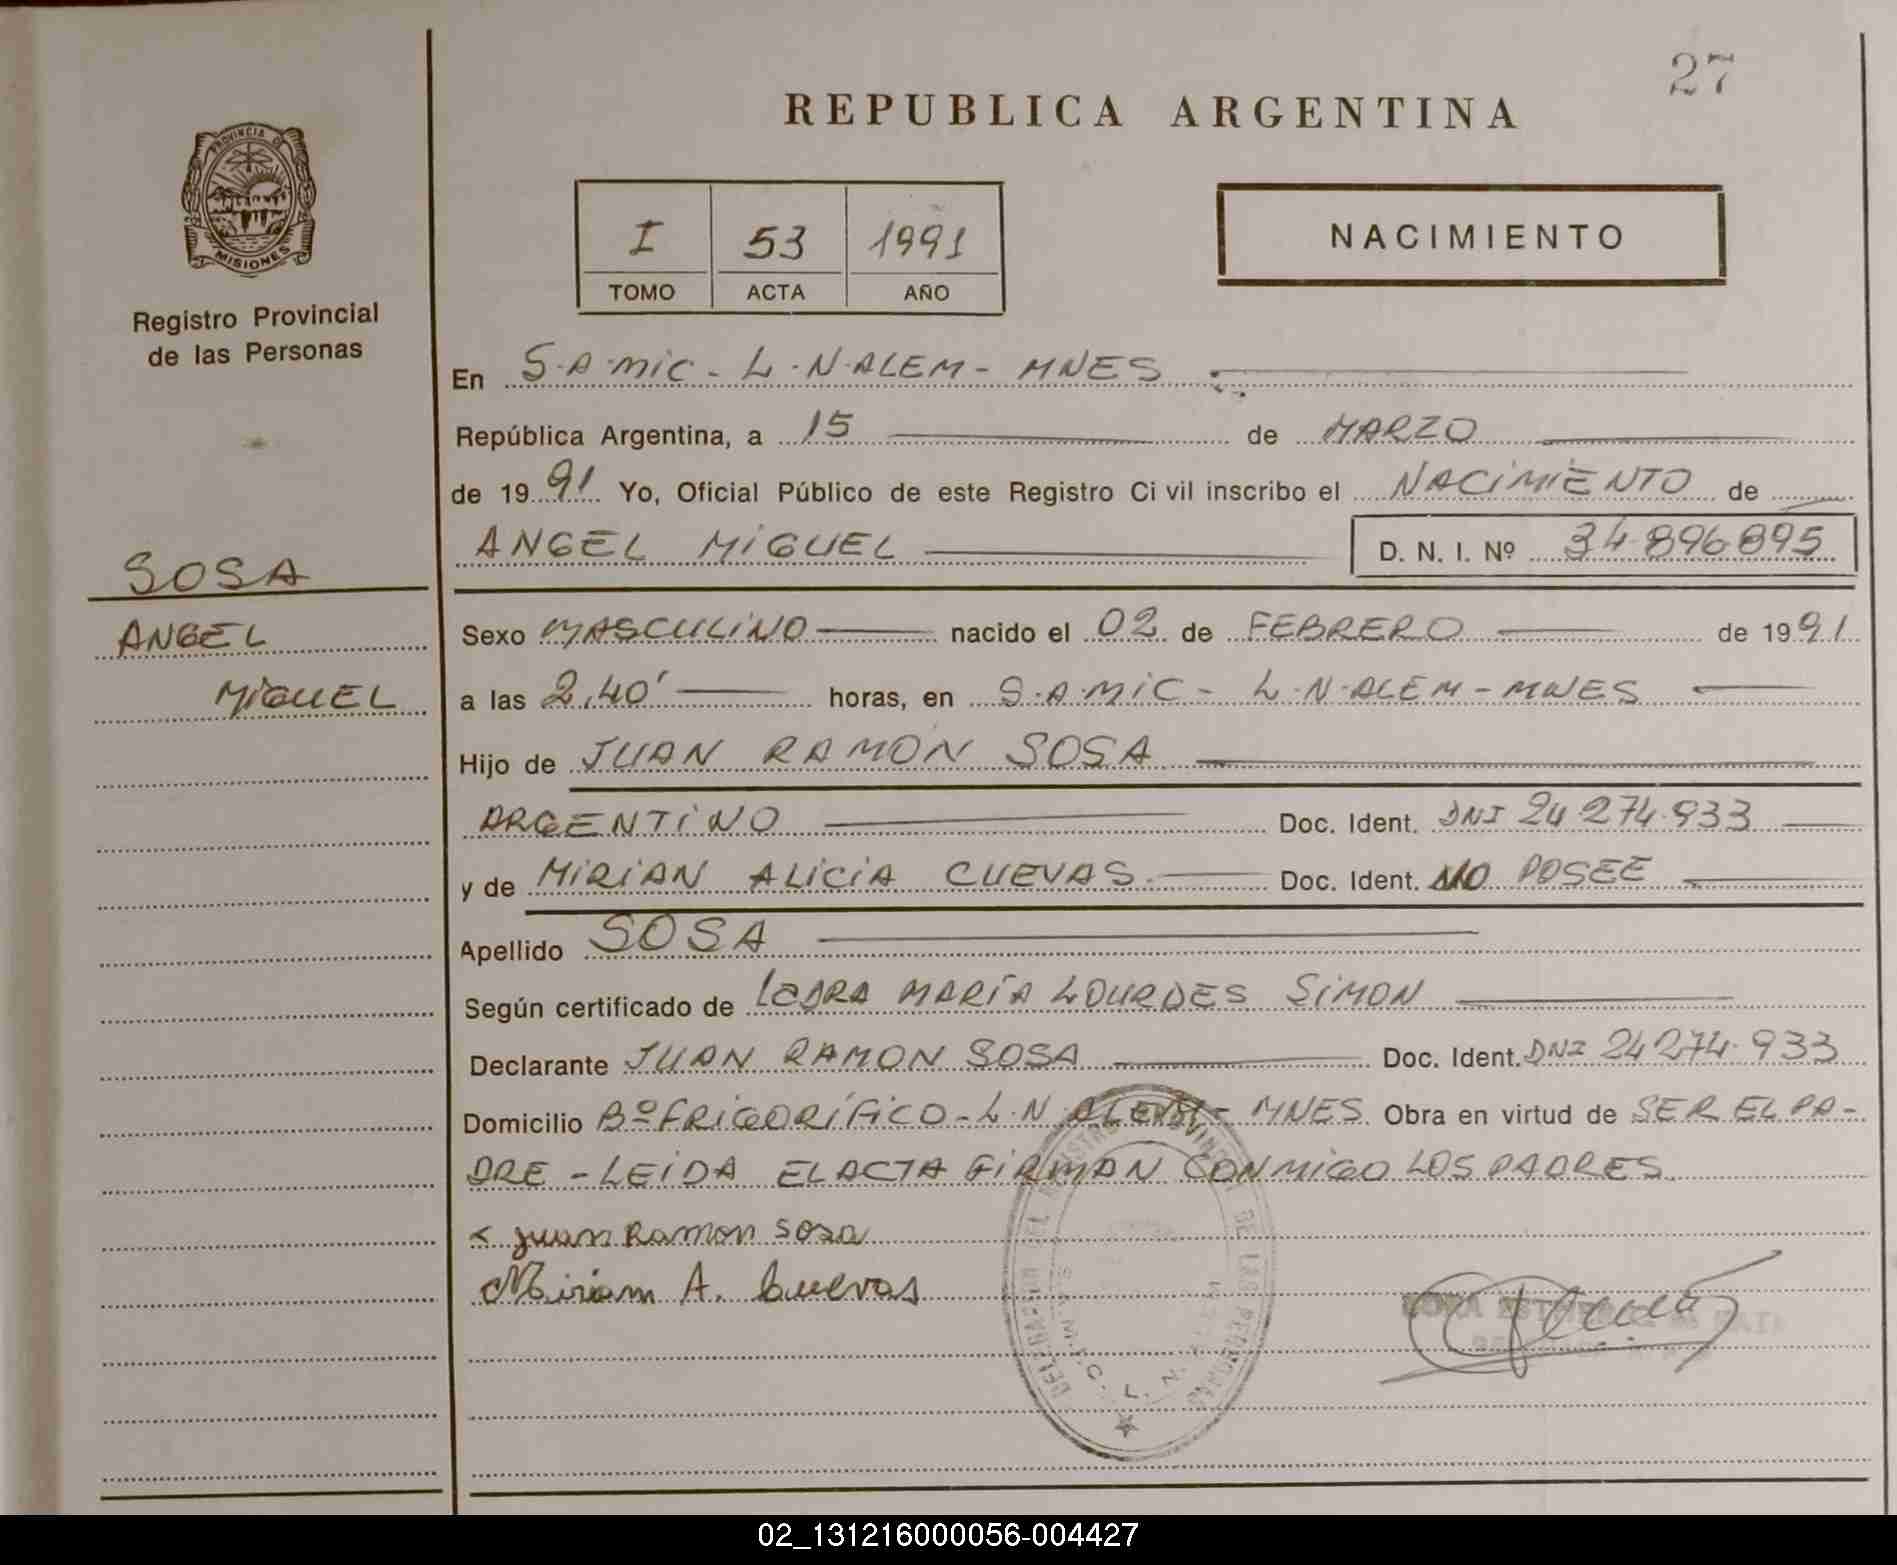 27
REPUBLICA ARGENTINA
PROVINCIA DE
MISIONES
Registro Provincial
de las Personas
I 53 1991
TOMO ACTA AÑO
NACIMIENTO
En S.A.MIC - L.N.ALEM - MNES
República Argentina, a 15 de MARZO
de 1991 Yo, Oficial Público de este Registro Civil inscribo el NACIMIENTO de
ANGEL MIGUEL D. N. I. Nº 34.896.895
SOSA
ANGEL
MIGUEL
Sexo MASCULINO nacido el 02 de FEBRERO de 1991
a las 2,40' horas, en S.A.MIC - L.N.ALEM - MNES
Hijo de JUAN RAMON SOSA
ARGENTINO Doc. Ident. DNI 24.274.933
y de MIRIAN ALICIA CUEVAS Doc. Ident. NO POSEE
Apellido SOSA
Según certificado de MARÍA LOURDES SIMON
Declarante JUAN RAMON SOSA Doc. Ident. DNI 24274.933
Domicilio Bº FRIGORÍFICO - L.N.ALEM - MNES Obra en virtud de SER EL PA-
DRE - LEIDA EL ACTA FIRMAN CONMIGO LOS PADRES
Juan Ramon Sosa
Miriam A. Cuevas
DE LAS PERSONAS
02_131216000056-004427